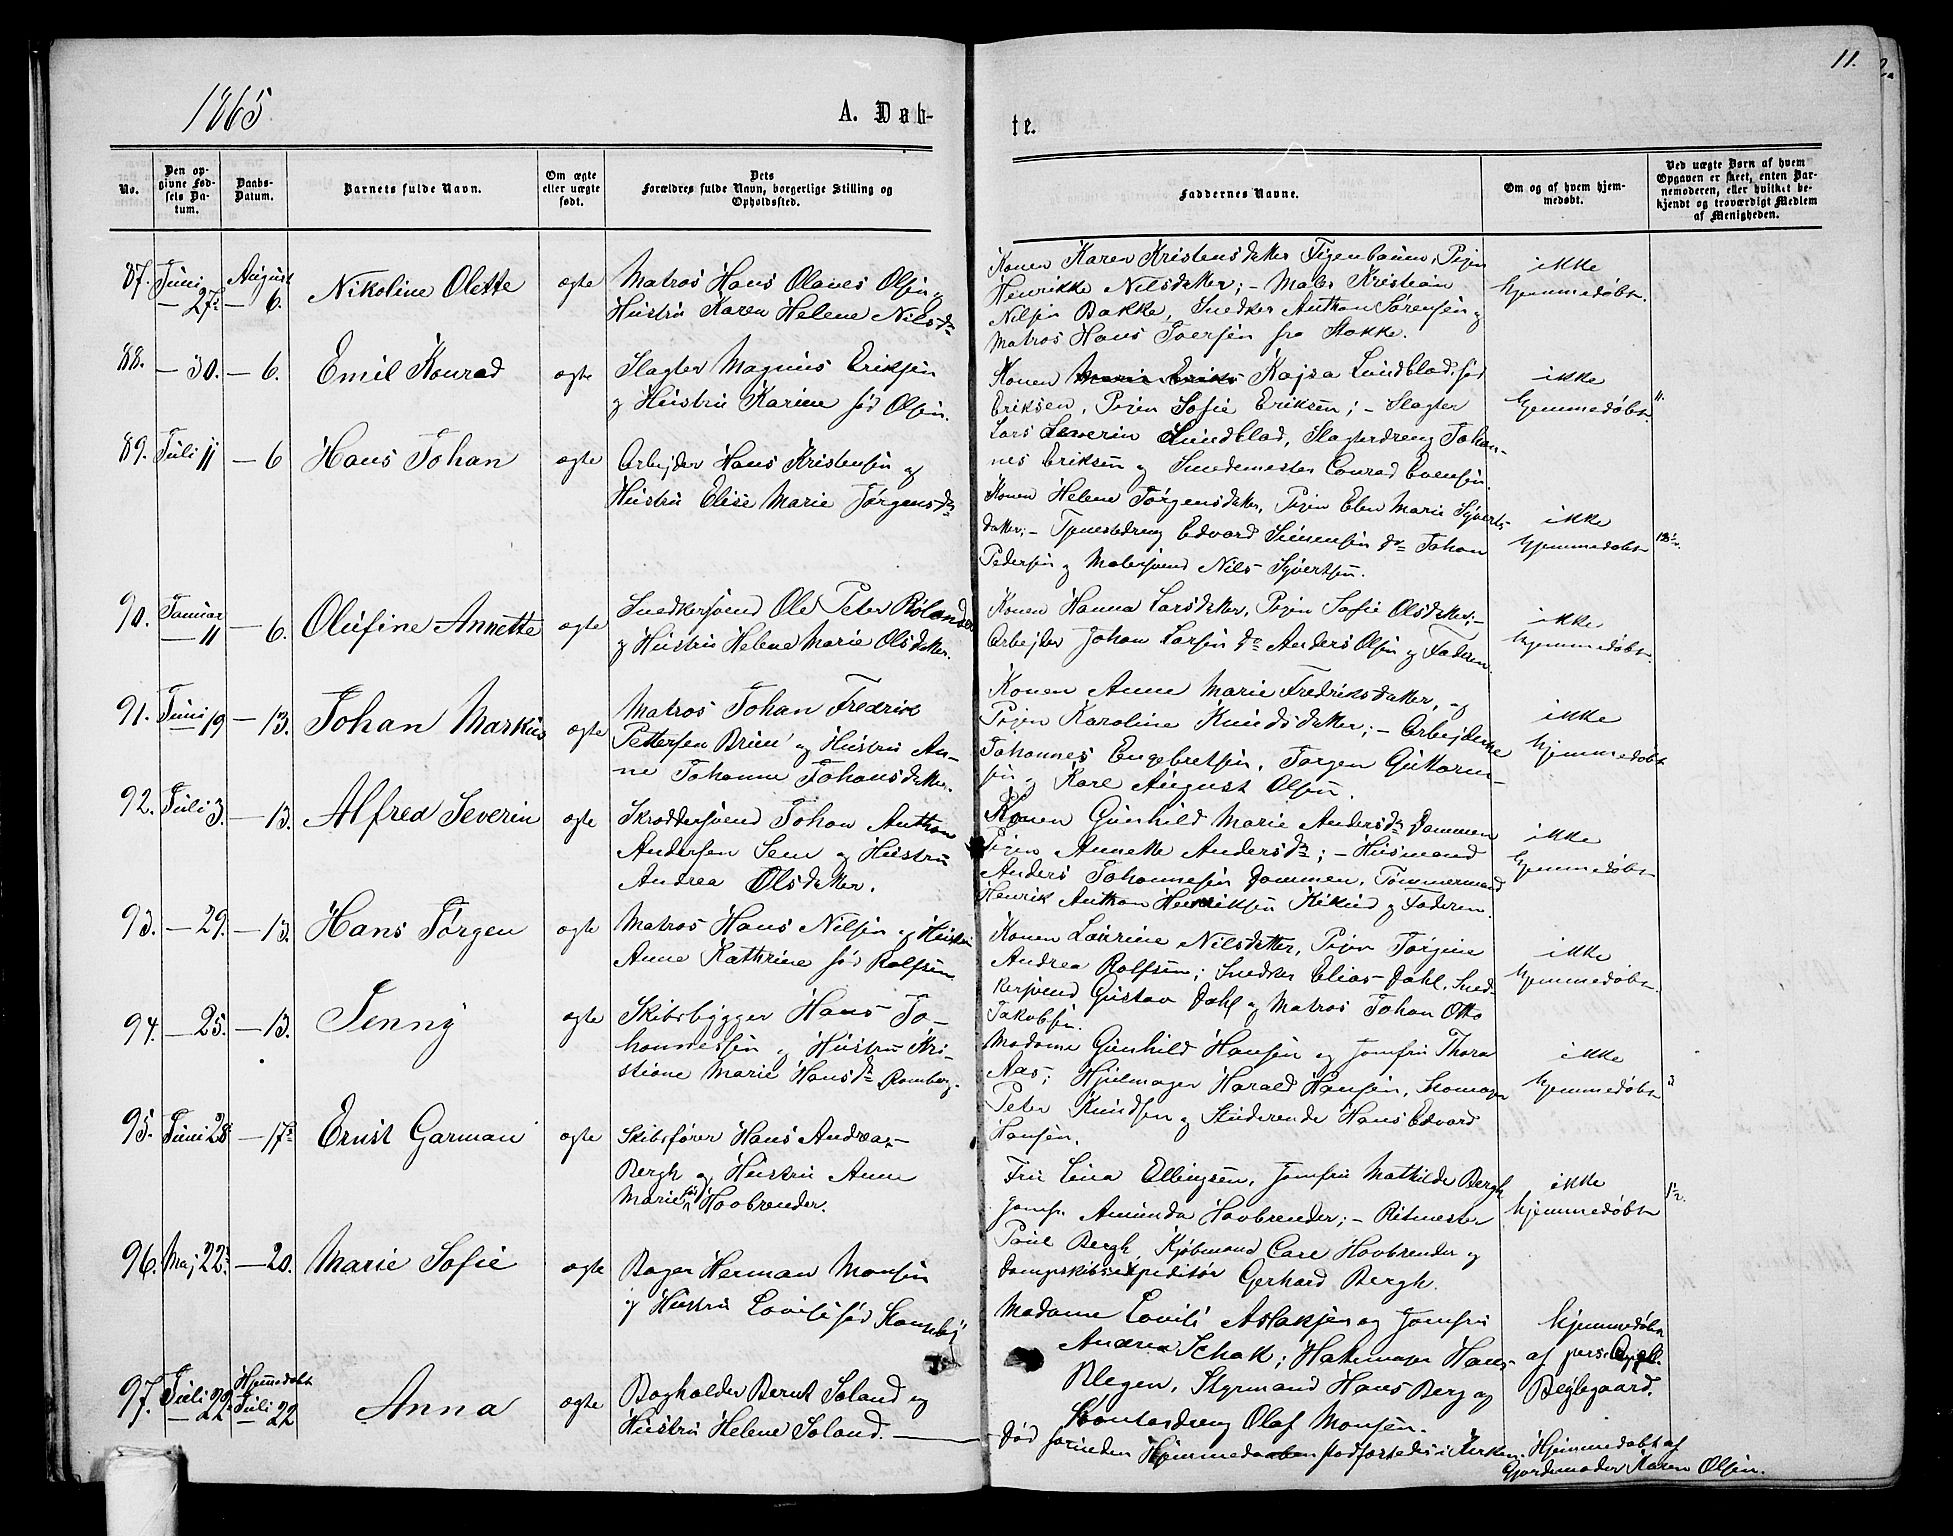 11.
1865
A. Døb-
te.
No.
Den op-
givne Fød-
sels Da-
tum.
Daabs-
Datum.
Barnets fulde Navn.
Om ægte
eller uægte
født.
Dets
Forældres fulde Navn, borgerlige Stilling og
Opholdssted.
Faddernes Navne.
Om og af hvem hjem-
medøbt.
Ved uægte Børn af hvem
Opgaven er skeet, enten Bar-
nemoderen, eller hvilket be-
kjendt og troværdigt Medlem
af Menigheden.
87. Juni 27de August 6. Nikoline Olette ægte
Matros Hans Olaves Olsen og
Hustru Karen Helene Nilsdr
Konen Karen Kristensdatter Figenbaum, Pigen
Henrikke Nilsdatter; - Maler Kristian
Nilsen Bakke, Snedker Anthon Sørensen og
Matros Hans Iversen fra Stokke.
ikke
hjemmedøbt.
88. — 30. — 6. Emil Konrad ægte
Slagter Magnus Eriksen
og Hustru Karine fød Olsen.
Konen Maria Eriks Kajsa Lundblad, fød
Eriksen, Pigen Sofie Eriksen; - Slagter
Lars Severin Lundblad, Slagterdreng Johan-
nes Eriksen og Smedemester Conrad Evensen.
ikke
hjemmedøbt.
89. Juli 11 — 6 Hans Johan ægte
Arbejder Hans Kristensen og
Hustru Elise Marie Jørgensdr
Konen Helene Jørgensdatter, Pigen Elen Marie Syverts-
datter; - Tjenestedreng Edvard Simensen, do Johan
Pedersen og Malersvend Nils Syvertsen.
ikke
hjemmedøbt
90. Januar 11 — 6. Olufine Annette ægte
Snedkersvend Ole Peter Rølander
og Hustru Helene Marie Olsdatter.
Konen Hanna Larsdatter, Pigen Sofie Olsdatter; -
Arbejder Johan Larsen do Anders Olsen og Faderen
ikke
hjemmedøbt.
91. Juni 19 — 13. Johan Markus ægte
Matros Johan Fredrik
Pettersen Bruu og Hustru An-
ne Johanne Johansdatter.
Konen Anne Marie Fredriksdatter, og
Pigen Karoline Knudsdatter; - Arbejderne
Johannes Engebretsen, Jørgen Guttorm-
sen og Karl August Olsen.
ikke
hjemmedøbt
92. Juli 3. — 13. Alfred Severin ægte
Skræddersvend Johan Anthon
Andersen Sem og Hustru
Andrea Olsdatter.
Konen Gunhild Marie Andersdr Dammen
Pigen Annette Andersdr; - Husmand
Anders Johannesen Dammen, Tømmermand
Henrik Anthon Henriksen Kikud og Faderen.
ikke
hjemmedøbt
93. — 29. — 13. Hans Jørgen ægte
Matros Hans Nilsen og Hustru
Anne Kathrine fød Rolfsen
Konen Laurine Nilsdatter, Pigen Jørgine
Andrea Rolfsen; Snedker Elias Dahl, Sned-
kersvend Gustav Dahl og Matros Johan Otto
Jakobsen.
ikke
hjemmedøbt.
94. — 25. — 13. Jenny ægte
Skibsbygger Hans Jo-
hannessen og Hustru Kri-
stiane Marie Hansdr Ramberg.
Madame Gunhild Hansen og Jomfru Thora
Aas; Hjulmager Harald Hansen, Skomager
Peter Knudsen og Studerende Hans Edvard
Hansen.
ikke
hjemmedøbt
95. Juni 28 — 17de Ernst Garman ægte
Skibsfører Hans Andreas
Bergh og Hustru Anne
Marie fød Hovbrender.
Fru Lina Ellingsen, Jomfru Mathilde Bergh
Jomf. Amunda Hovbrender; - Ritmester
Paul Bergh, Kjøbmand Carl Hovbrender og
Dampskibsexpeditør Gerhard Bergh.
ikke
hjemmedøbt
96. Maj 22de — 20. Marie Sofie ægte
Bager Herman Monsen
og Hustru Lovise fød
Madame Lovise Aslaksen og Jomfru
Andrea Schak; Hattemager Hans
Blegen, Styrmand Hans Berg og
Olaf Monsen.
hjemmedøbt
af
Bejlegaard.
97. Juli 22 Hjemmedøbt Juli 22 Anna ægte
Bogholder Bernt Soland og
Hustru Helene Soland. —
Død forinden Hjemmedaaben stadfæstedes i Kirken.
Hjemmedøbt af
Gjordemoder Karen Olsen.